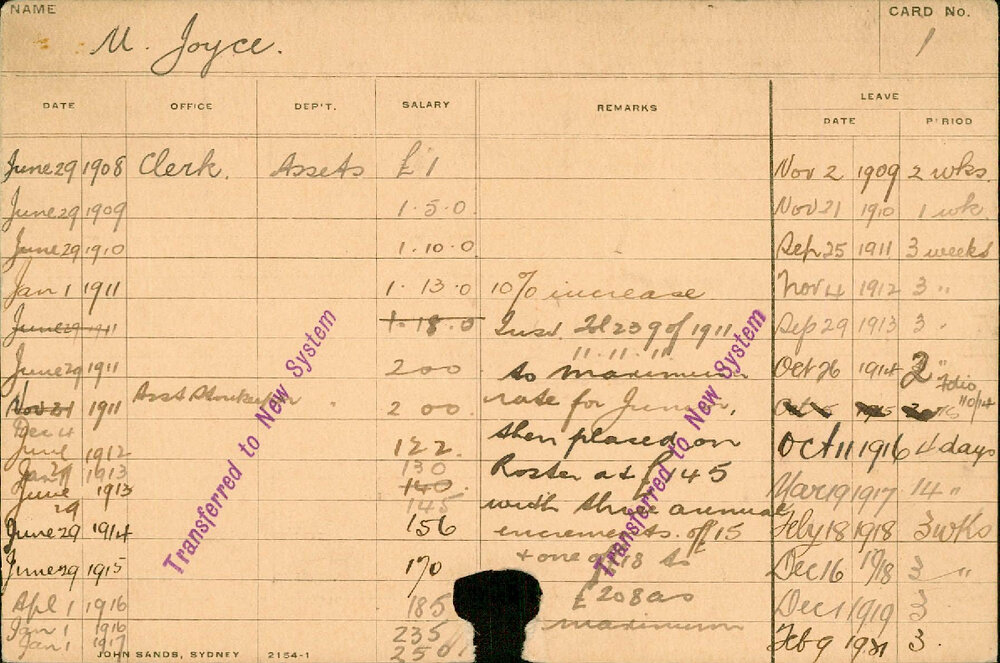 NAME
CARD No.
M. Joyce.
1
DATE OFFICE DEP'T. SALARY REMARKS LEAVE
DATE PERIOD
June 29 1908 Clerk. Assets £1 Nov 2 1909 2 wks.
June 29 1909 1.5.0 Nov 21 1910 1 wk.
June 29 1910 1.10.0 Sep 25 1911 3 weeks
Jan 1 1911 1.13.0 10% increase Nov 4 1912 3 "
June 29 1911 1.18.0 239 of 1911 Sep 29 1913 3 "
" 11. 11. 11
June 29 1911 200 to maximum Oct 26 1914 2 "
Folio 110/14
Nov 21 1911 Asst 200 rate for Junior,
Dec 4 then placed on Oct 11 1916 4 days
June 1912 122.
Jan 1 1913 130 Roster at £145
June 1913 140. Mar 19 1917 14 "
29 145 with three annual
June 29 1914 156 increments of 15 Feby 18 1918 3 wks
June 29 1915 170 + one of 18 to Dec 16 1918 3 "
Apl 1 1916 185 £208 as Dec 1 1919 3
Jan 1 1916 235 maximum
Jan 1 1917 250 Feb 9 1921 3.
Transferred to New System
Transferred to New System
JOHN SANDS, SYDNEY 2154-1